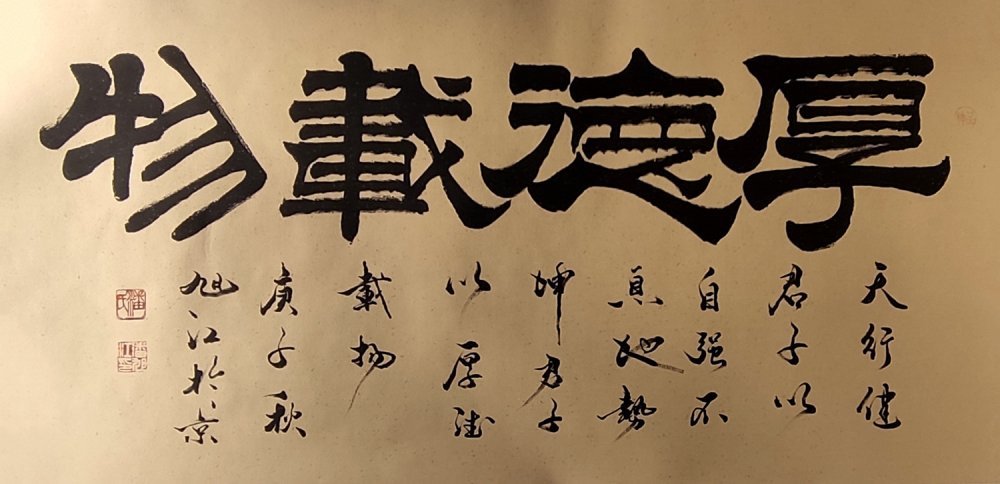 厚德載物
天行健
君子以
自强不
息地勢
坤君子
以厚德
載物
庚子秋
旭江於京
潘氏